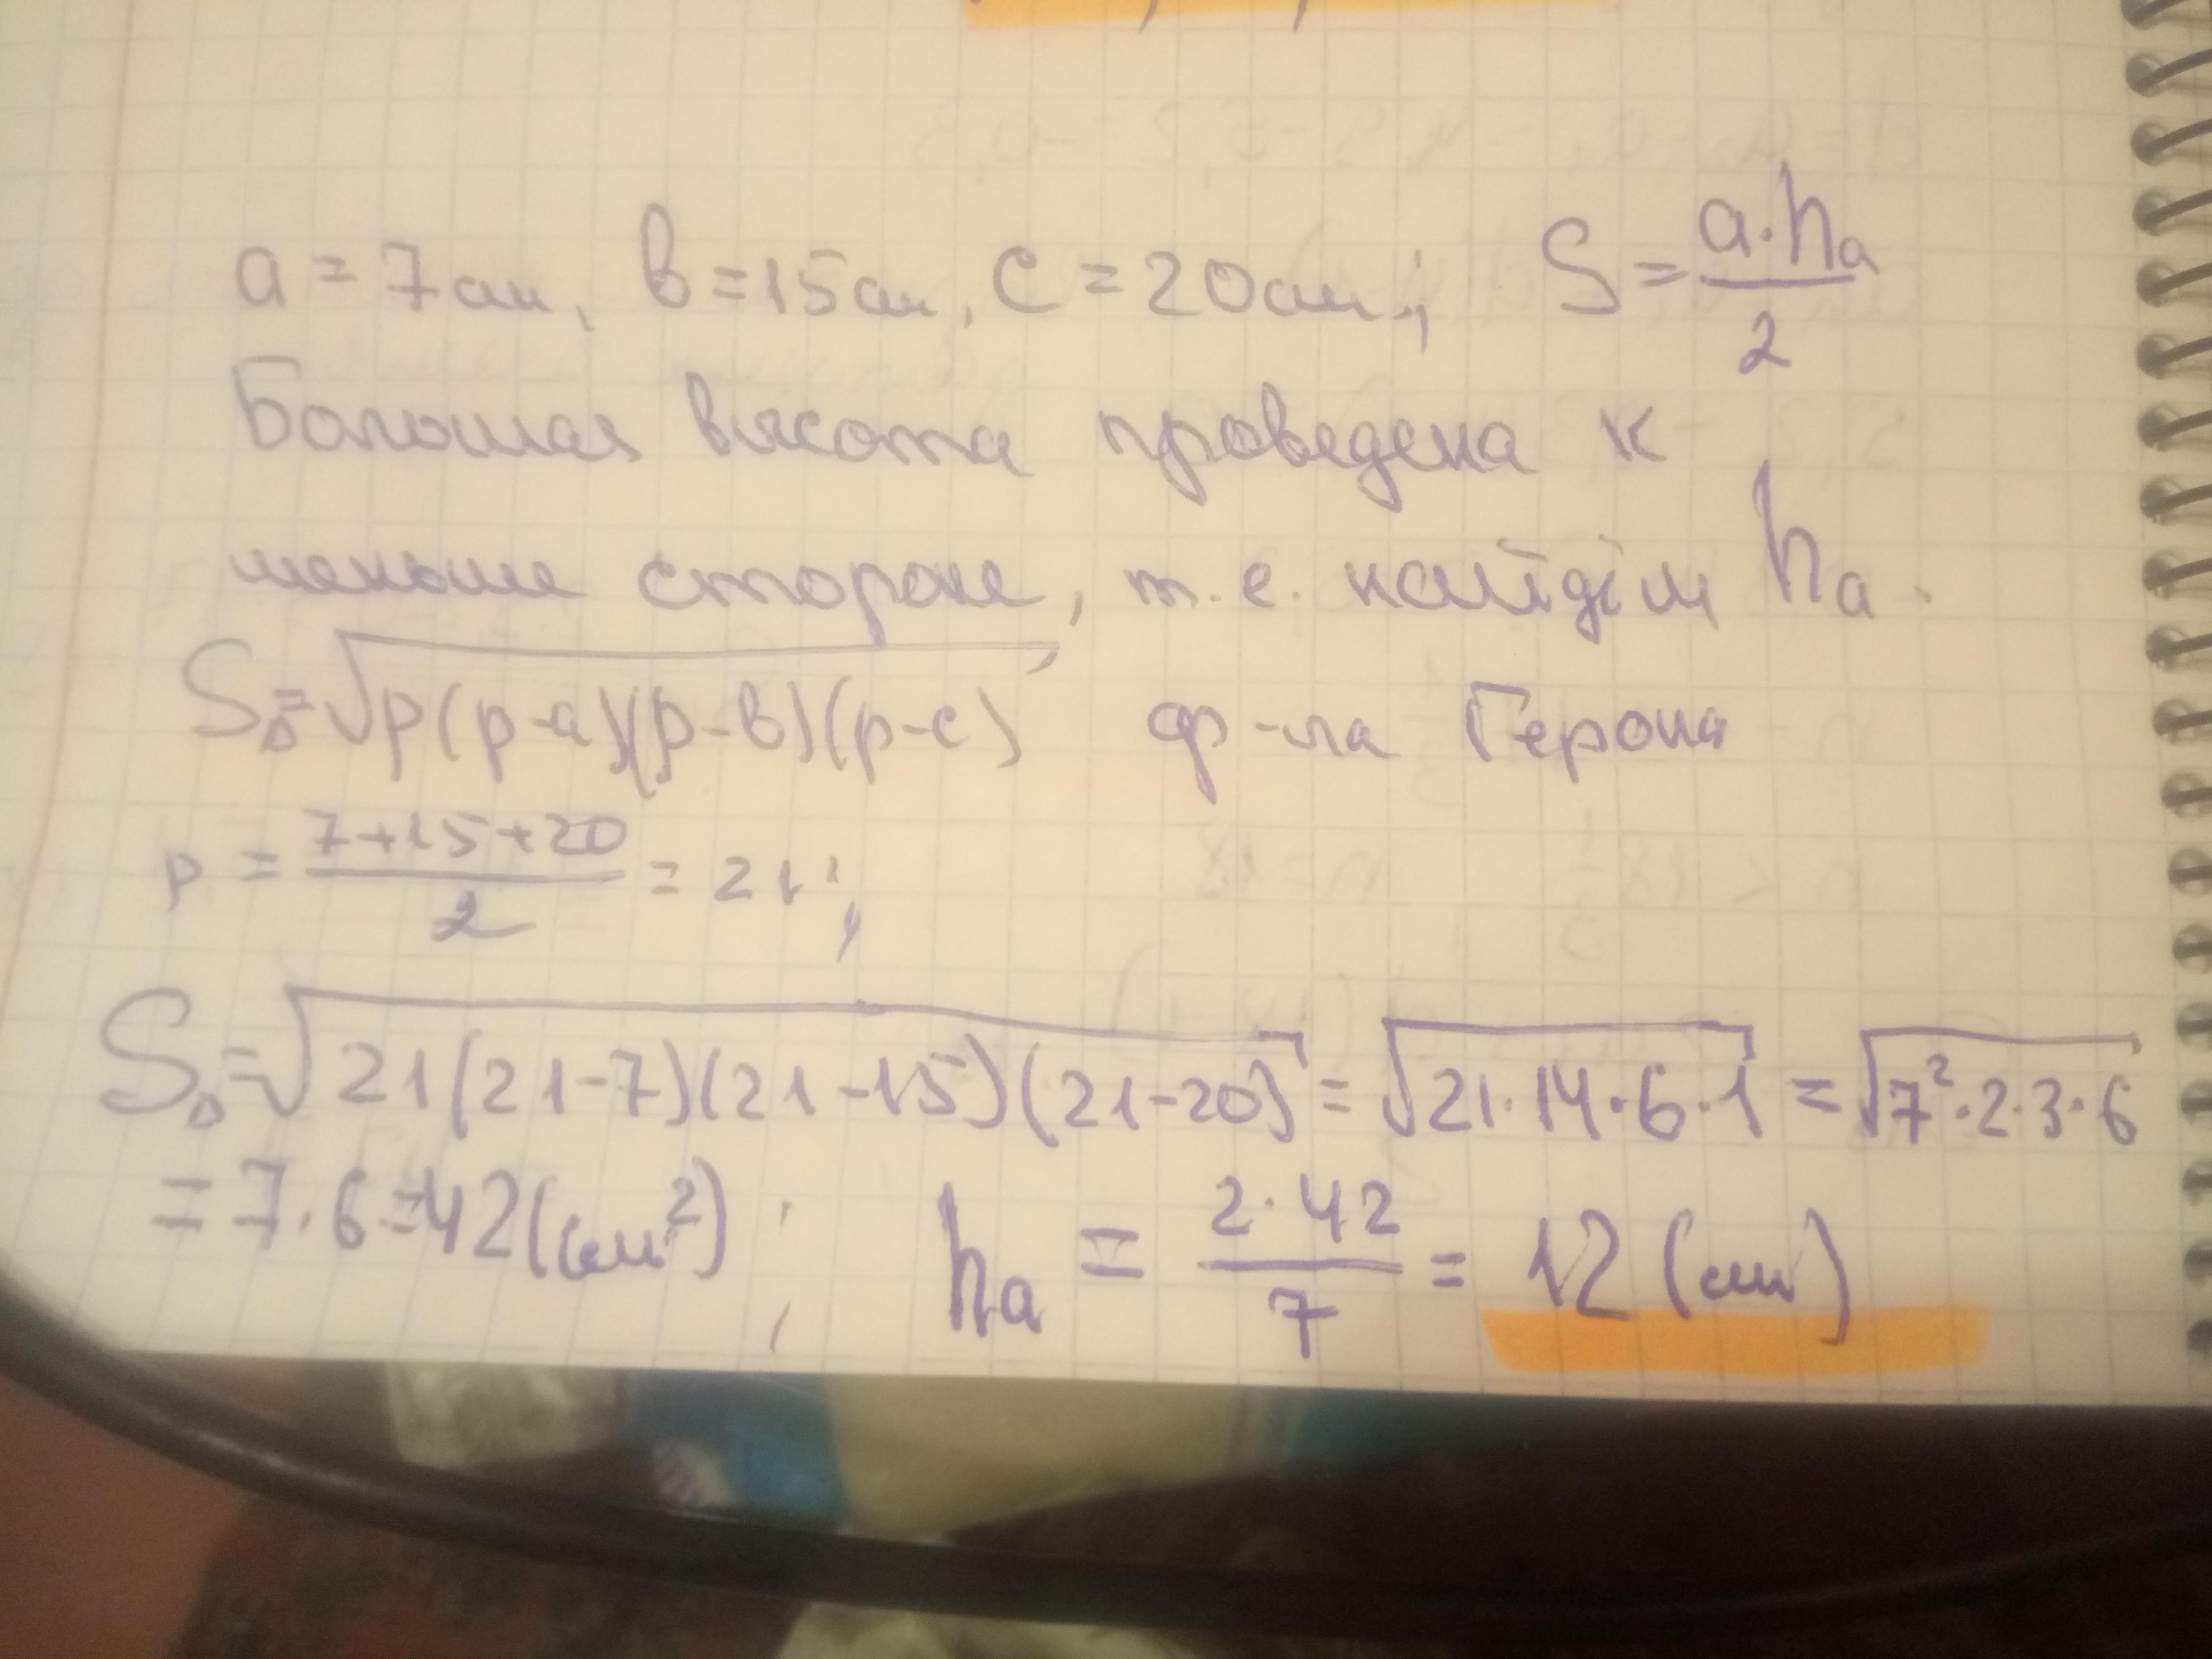 a = 7 см, в = 15 см, с = 20 см; S = a·hₐ/2
Большая высота проведена к
меньше стороне, т.е. найдём hₐ.
S△ = √(p(p-a)(p-в)(p-c)) ф-ла Герона
p = (7+15+20)/2 = 21;
S△ = √(21(21-7)(21-15)(21-20)) = √(21·14·6·1) = √(7²·2·3·6)
= 7·6 = 42 (см²); hₐ = 2·42/7 = 12 (см)